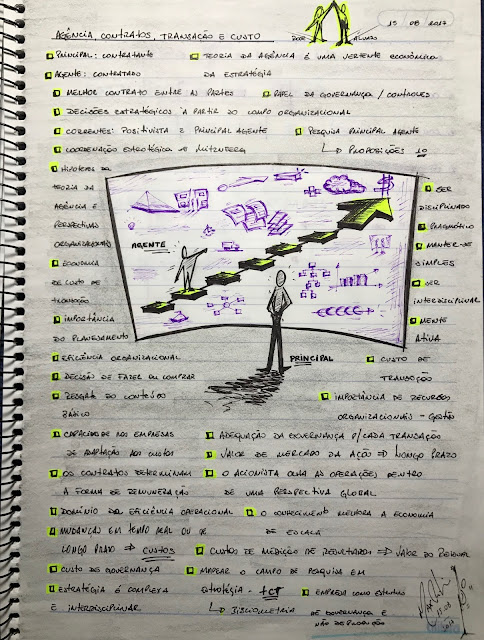 15 08 2017
AGÊNCIA, CONTRATOS, TRANSAÇÃO E CUSTO
POR ALUNOS
PRINCIPAL: CONTRATANTE
TEORIA DA AGÊNCIA É UMA VERTENTE ECONÔMICA
DA ESTRATÉGIA
AGENTE: CONTRATADO
MELHOR CONTRATO ENTRE AS PARTES
PAPEL DA GOVERNANÇA / CONTROLES
DECISÕES ESTRATÉGICAS A PARTIR DO CAMPO ORGANIZACIONAL
CORRENTES: POSITIVISTA E PRINCIPAL AGENTE
PESQUISA PRINCIPAL AGENTE
↳ PROPOSIÇÕES 10
COORDENAÇÃO ESTRATÉGICA MITZBERG
HIPÓTESES DA
TEORIA DA
AGÊNCIA E
PERSPECTIVAS
ORGANIZACIONAIS
ECONOMIA
DE CUSTO DE
TRANSAÇÃO
IMPORTÂNCIA
DO PLANEJAMENTO
AGENTE
PRINCIPAL
SER
DISCIPLINADO
PRAGMÁTICO
MANTER-SE
SIMPLES
SER
INTERDISCIPLINAR
MENTE
ATIVA
EFICIÊNCIA ORGANIZACIONAL
CUSTO DE
TRANSAÇÃO
DECISÃO DE FAZER OU COMPRAR
RESGATE DO CONTEÚDO
BÁSICO
IMPORTÂNCIA DE RECURSOS
ORGANIZACIONAIS - GESTÃO
CAPACIDADE NAS EMPRESAS
DE ADAPTAÇÃO AOS CUSTOS
ADEQUAÇÃO DA GOVERNANÇA P/ CADA TRANSAÇÃO
VALOR DE MERCADO DA AÇÃO ⇒ LONGO PRAZO
OS CONTRATOS DETERMINAM
A FORMA DE REMUNERAÇÃO
O ACIONISTA OLHA AS OPERAÇÕES DENTRO
DE UMA PERSPECTIVA GLOBAL
DOMÍNIO DA EFICIÊNCIA OPERACIONAL
O CONHECIMENTO MELHORA A ECONOMIA
DE ESCALA
MUDANÇAS EM TEMPO REAL OU DE
LONGO PRAZO ⇒ CUSTOS
CUSTOS DE MEDIÇÃO DE RESULTADOS ⇒ VALOR DO RESIDUAL
CUSTO DE GOVERNANÇA
MAPEAR O CAMPO DE PESQUISA EM
ESTRATÉGIA - TCT
↳ BIBLIOMETRIA
ESTRATÉGIA É COMPLEXA
E INTERDISCIPLINAR
EMPRESA COMO ESTRUTURA
DE GOVERNANÇA E
NÃO DE PRODUÇÃO